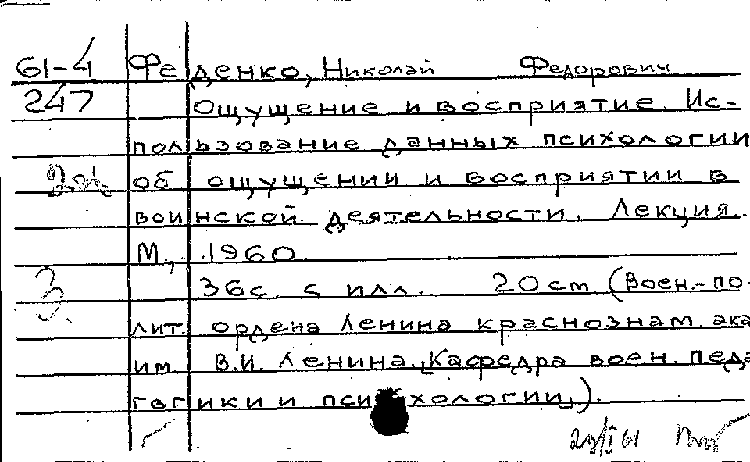 61-4 Феденко, Николай Федорович
247 Ощущение и восприятие. Ис-
пользование данных психологии
об ощущении и восприятии в
воинской деятельности. Лекция.
М., 1960.
36с с илл. 20см (Воен.-по-
лит. ордена Ленина краснознам. ака
им. В.И. Ленина. Кафедра воен. педа
гогики и психологии).